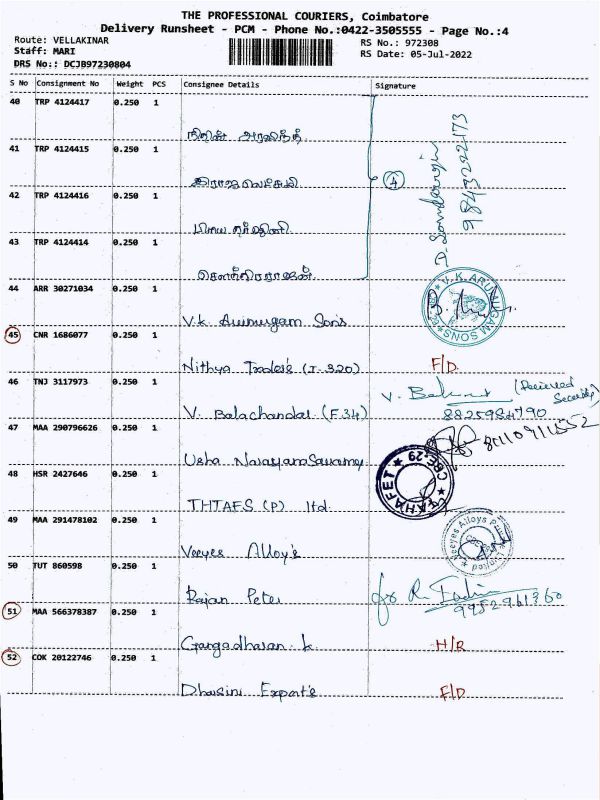 THE PROFESSIONAL COURIERS, Coimbatore
Delivery Runsheet - PCM - Phone No.:0422-3505555 - Page No.:4
Route: VELLAKINAR
RS No.: 972308
Staff: MARI
RS Date: 05-Jul-2022
DRS No:: DCJB97230804
S No Consignment No Weight PCS Consignee Details Signature
40 TRP 4124417 0.250 1
நிதின் அரவிந்த்
41 TRP 4124415 0.250 1
4
42 TRP 4124416 0.250 1
9843222173
43 TRP 4124414 0.250 1
44 ARR 30271034 0.250 1
V.K. ARUMUGAM SONS
V.K Arumugam Sons
45 CNR 1686077 0.250 1
Nithya Trader's (I-320) F/D
46 TNJ 3117973 0.250 1
V. (Received Security)
V. Balachandar (F.34) 8825984790
47 MAA 290796626 0.250 1
Usha Narayana Swamy
48 HSR 2427646 0.250 1
CBE-29
THTAFS (P) ltd
49 MAA 291478102 0.250 1
Veeyes Alloys Private Limited
Veeyes Alloy's
50 TUT 860598 0.250 1
Rajan Peter for R.
9952961360
51 MAA 566378387 0.250 1
Gangadharan k H/R
52 COK 20122746 0.250 1
Dharsini Export's F/D